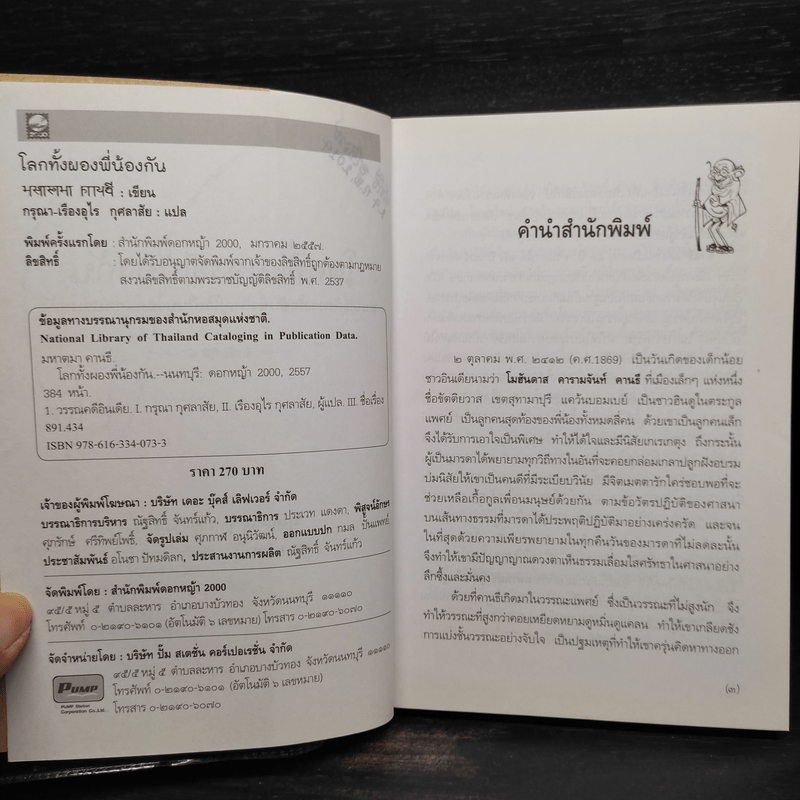 โลกทั้งผองพี่น้องกัน
มหาตมา คานธี : เขียน
กรุณา-เรืองอุไร กุศลาสัย : แปล
พิมพ์ครั้งแรกโดย : สำนักพิมพ์ดอกหญ้า 2000, มกราคม ๒๕๕๗.
ลิขสิทธิ์ : โดยได้รับอนุญาตจัดพิมพ์จากเจ้าของลิขสิทธิ์ถูกต้องตามกฎหมาย
สงวนลิขสิทธิ์ตามพระราชบัญญัติลิขสิทธิ์ พ.ศ. 2537
ข้อมูลทางบรรณานุกรมของสำนักหอสมุดแห่งชาติ.
National Library of Thailand Cataloging in Publication Data.
มหาตมา คานธี.
โลกทั้งผองพี่น้องกัน.--นนทบุรี: ดอกหญ้า 2000, 2557
384 หน้า.
1. วรรณคดีอินเดีย. I. กรุณา กุศลาสัย, II. เรืองอุไร กุศลาสัย, ผู้แปล. III. ชื่อเรื่อง
891.434
ISBN 978-616-334-073-3
ราคา 270 บาท
เจ้าของผู้พิมพ์โฆษณา : บริษัท เดอะ บุ๊คส์ เลิฟเวอร์ จำกัด
บรรณาธิการบริหาร ณัฐสิทธิ์ จันทร์แก้ว, บรรณาธิการ ประเวท แตงดา, พิสูจน์อักษร
ศุภรักษ์ ศรีทิพย์โพธิ์, จัดรูปเล่ม ศุภกาฬ อนุนิวัฒน์, ออกแบบปก กมล ปั้นแพทย์,
ประชาสัมพันธ์ อโนชา ปัทมดิลก, ประสานงานการผลิต ณัฐสิทธิ์ จันทร์แก้ว
จัดพิมพ์โดย : สำนักพิมพ์ดอกหญ้า 2000
๙๕/๕ หมู่ ๕ ตำบลละหาร อำเภอบางบัวทอง จังหวัดนนทบุรี ๑๑๑๑๐
โทรศัพท์ ๐-๒๑๙๐-๖๑๐๑ (อัตโนมัติ ๖ เลขหมาย) โทรสาร ๐-๒๑๙๐-๖๐๗๐
จัดจำหน่ายโดย : บริษัท ปั๊ม สเตชั่น คอร์เปอเรชั่น จำกัด
๙๕/๕ หมู่ ๕ ตำบลละหาร อำเภอบางบัวทอง จังหวัดนนทบุรี ๑๑๑๑๐
โทรศัพท์ ๐-๒๑๙๐-๖๑๐๑ (อัตโนมัติ ๖ เลขหมาย)
โทรสาร ๐-๒๑๙๐-๖๐๗๐
PUMP
PUMP Station
Corporation Co.,Ltd.
คำนำสำนักพิมพ์
๒ ตุลาคม พ.ศ. ๒๔๑๒ (ค.ศ.1869) เป็นวันเกิดของเด็กน้อย
ชาวอินเดียนามว่า โมฮันดาส คารามจันท์ คานธี ที่เมืองเล็กๆ แห่งหนึ่ง
ชื่อขัตติยวาส เขตสุทามาปุรี แคว้นบอมเบย์ เป็นชาวฮินดูในตระกูล
แพศย์ เป็นลูกคนสุดท้องของพี่น้องทั้งหมดสี่คน ด้วยเขาเป็นลูกคนเล็ก
จึงได้รับการเอาใจเป็นพิเศษ ทำให้ได้ใจและมีนิสัยเกเรเกตุง ถึงกระนั้น
ผู้เป็นมารดาได้พยายามทุกวิถีทางในอันที่จะคอยกล่อมเกลาปลูกฝังอบรม
บ่มนิสัยให้เขาเป็นคนดีที่มีระเบียบวินัย มีจิตเมตตารักใคร่ชอบพอที่จะ
ช่วยเหลือเกื้อกูลเพื่อนมนุษย์ด้วยกัน ตามข้อวัตรปฏิบัติของศาสนา
บนเส้นทางธรรมที่มารดาได้ประพฤติปฏิบัติมาอย่างเคร่งครัด และจน
ในที่สุดด้วยความเพียรพยายามในทุกคืนวันของมารดาที่ไม่ลดละนั้น
จึงทำให้เขามีปัญญาญาณดวงตาเห็นธรรมเลื่อมใสศรัทธาในศาสนาอย่าง
ลึกซึ้งและมั่นคง
ด้วยที่คานธีเกิดมาในวรรณะแพศย์ ซึ่งเป็นวรรณะที่ไม่สูงนัก จึง
ทำให้วรรณะที่สูงกว่าคอยเหยียดหยามดูหมิ่นดูแคลน ทำให้เขาเกลียดชัง
การแบ่งชั้นวรรณะอย่างจับใจ เป็นปฐมเหตุที่ทำให้เขาครุ่นคิดหาทางออก
(๓)